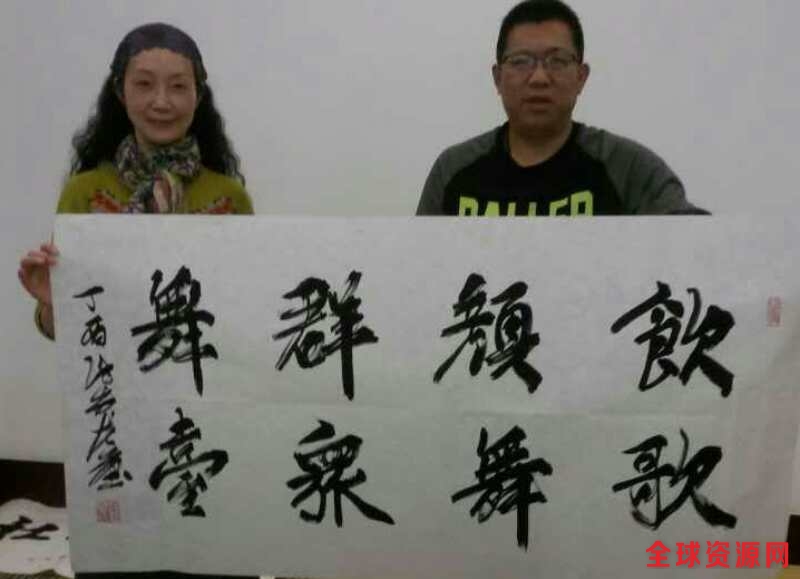 飲歌
顔舞
群眾
舞臺
丁酉
BALLER
全球资源网